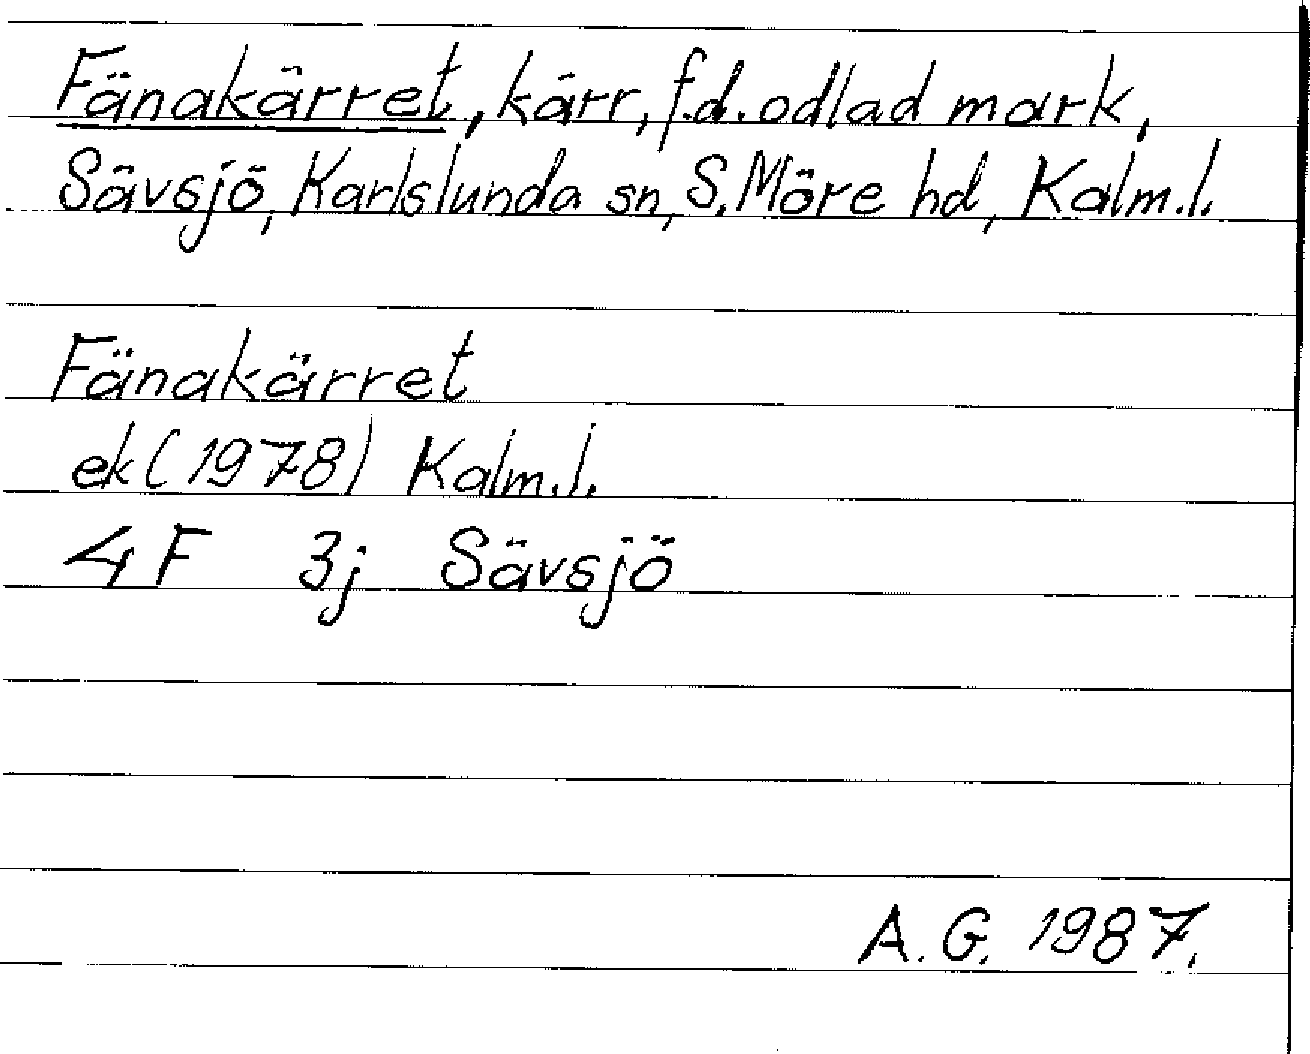 Fänakärret, kärr, f.d. odlad mark,
Sävsjö, Karlslunda sn, S. Möre hd, Kalm.l.
Fänakärret
ek (1978) Kalm.l.
4F 3j Sävsjö
A.G. 1987.